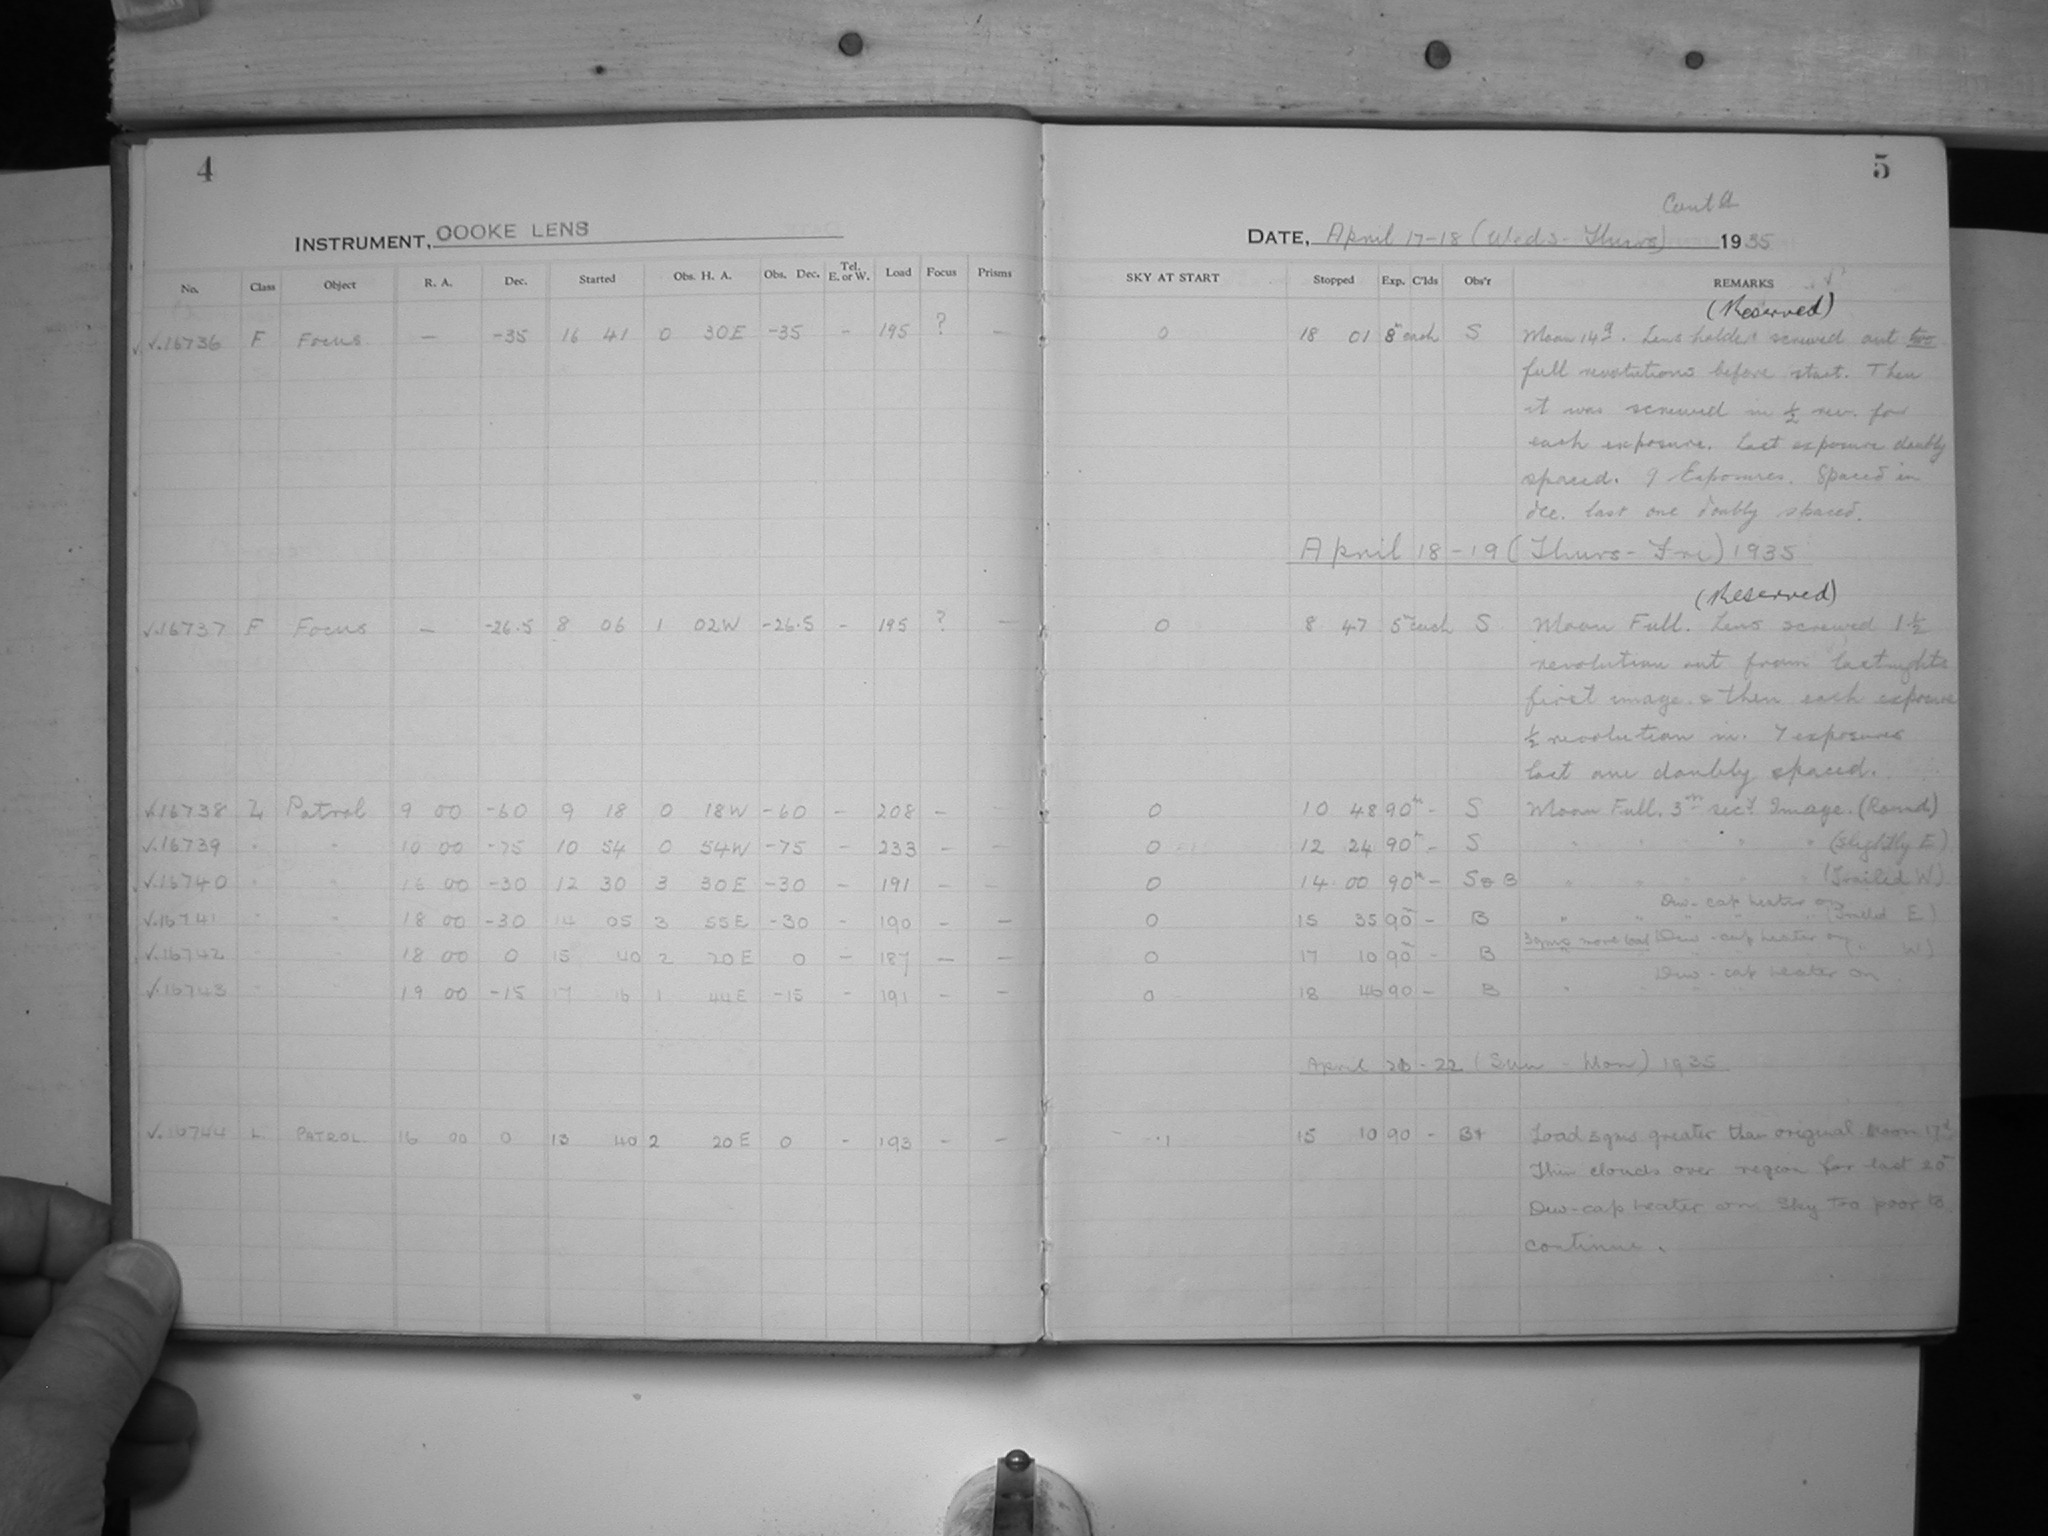 4
INSTRUMENT, COOKE LENS
No. Class Object R. A. Dec. Started Obs. H. A. Obs. Dec. Tel. E. or W. Load Focus Prisms
√.16736 F Focus — -35 16 41 0 30E -35 - 195 ? —
√.16737 F Focus — -26.5 8 06 1 02W -26.5 - 195 ? —
√.16738 L Patrol 9 00 -60 9 18 0 18W -60 - 208 - -
√.16739 " " 10 00 -75 10 54 0 54W -75 - 233 - -
√.16740 " " 16 00 -30 12 30 3 30E -30 - 191 - -
√.16741 " " 18 00 -30 14 05 3 55E -30 - 190 - -
√.16742 " " 18 00 0 15 40 2 20E 0 - 187 - -
√.16743 " " 19 00 -15 17 16 1 44E -15 - 191 - -
√.16744 L PATROL 16 00 0 13 40 2 20E 0 - 193 - -
5
Cont'd
DATE, April 17-18 (Weds - Thurs) 1935
SKY AT START Stopped Exp. C'lds Obs'r REMARKS
(Reserved)
0 18 01 8m each S Moon 14d. Lens holder screwed out two
full revolutions before start. Then
it was screwed in ½ rev. for
each exposure. Last exposure doubly
spaced. 9 Exposures. Spaced in
dec. last one doubly spaced.
April 18-19 (Thurs - Fri) 1935
(Reserved)
0 8 47 5m each S Moon Full. Lens screwed 1½
revolution out from lastnights
first image & then each exposure
½ revolution in. 7 exposures
last one doubly spaced.
0 10 48 90m - S Moon Full. 3m sec'y Image. (Round)
0 12 24 90m - S " " " " " (Slightly E)
0 14 00 90m - S & B " " " " " (Trailed W)
Dew-cap heater on
0 15 35 90m - B " " " " " (Trailed E)
3 gms more load Dew-cap heater on
0 17 10 90m - B " W)
Dew-cap heater on
0 18 46 90 - B " " " "
April 21-22 (Sun - Mon) 1935
15 10 90 - B+ Load 3 gms greater than original Moon 17d
Thin clouds over region for last 20m
Dew-cap heater on Sky too poor to
continue.